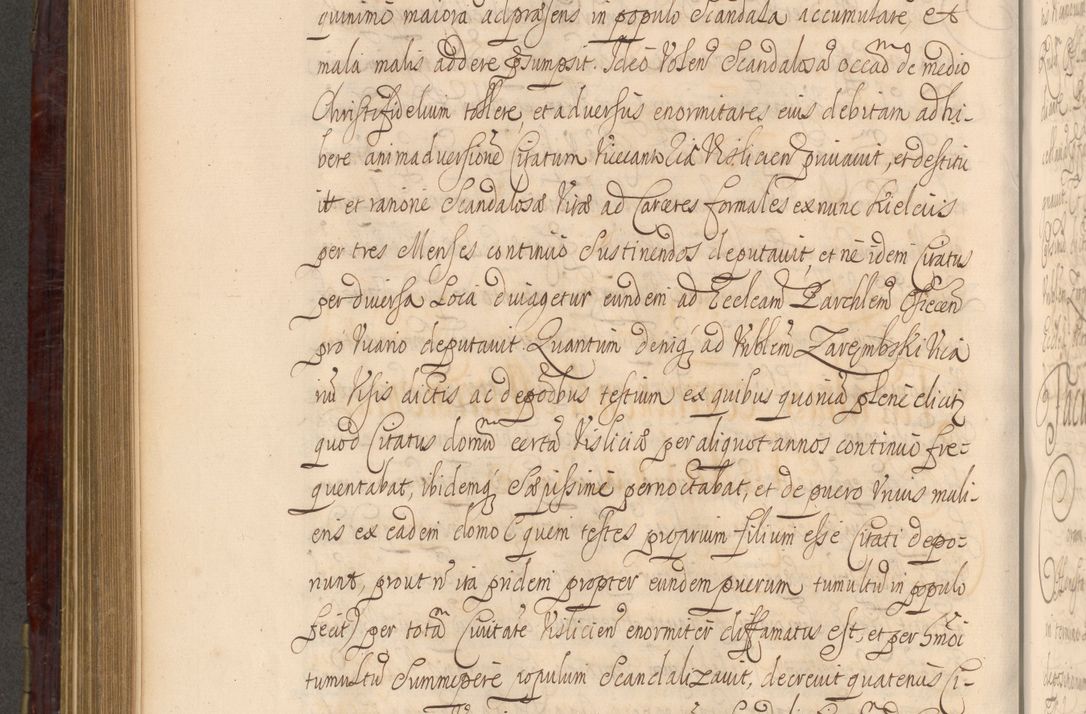 quinimo maiora ad præsens in populo Scandala accumulare, et
mala malis addere præsumpsit. Ideo Volen Scandalosã occãõnem de medio
Christifidelium tollere, et adversùs enormitates eius debitam adhi-
bere animadversionẽ Citatum Viccariatu Vislicien privavit, et destitu
it et ratione Scandalosæ Vitæ ad Carceres formales ex nunc Kielciis
per tres Menses continuò Sustinendos deputavit, et ne idem Citatus
per diversa Loca divagetur eundem ad Ecclēam Parchlem
pro Vicario deputavit Quantum deniq ad Vnblem Zarembski Vica
riũ Visis dictis ac depõõbus testium ex quibus quoniã plenè elicit
quòd Citatus domũ certã Visliciæ per aliquot annos continuò fre-
quentabat, ibidemq Sæpissimè pernoctabat, et de puero Unius muli-
eris ex eadem domo (quem testes proprium filium esse Citati depo-
nunt, prout n ita pridem propter eundem puerum tumultũ in populo
fecit) per totã Civitatẽ Vislicien enormiter diffamatus est, et per hmõi
tumultũ Summoperè populum Scandalizavit, decrevit quatenùs Ci-